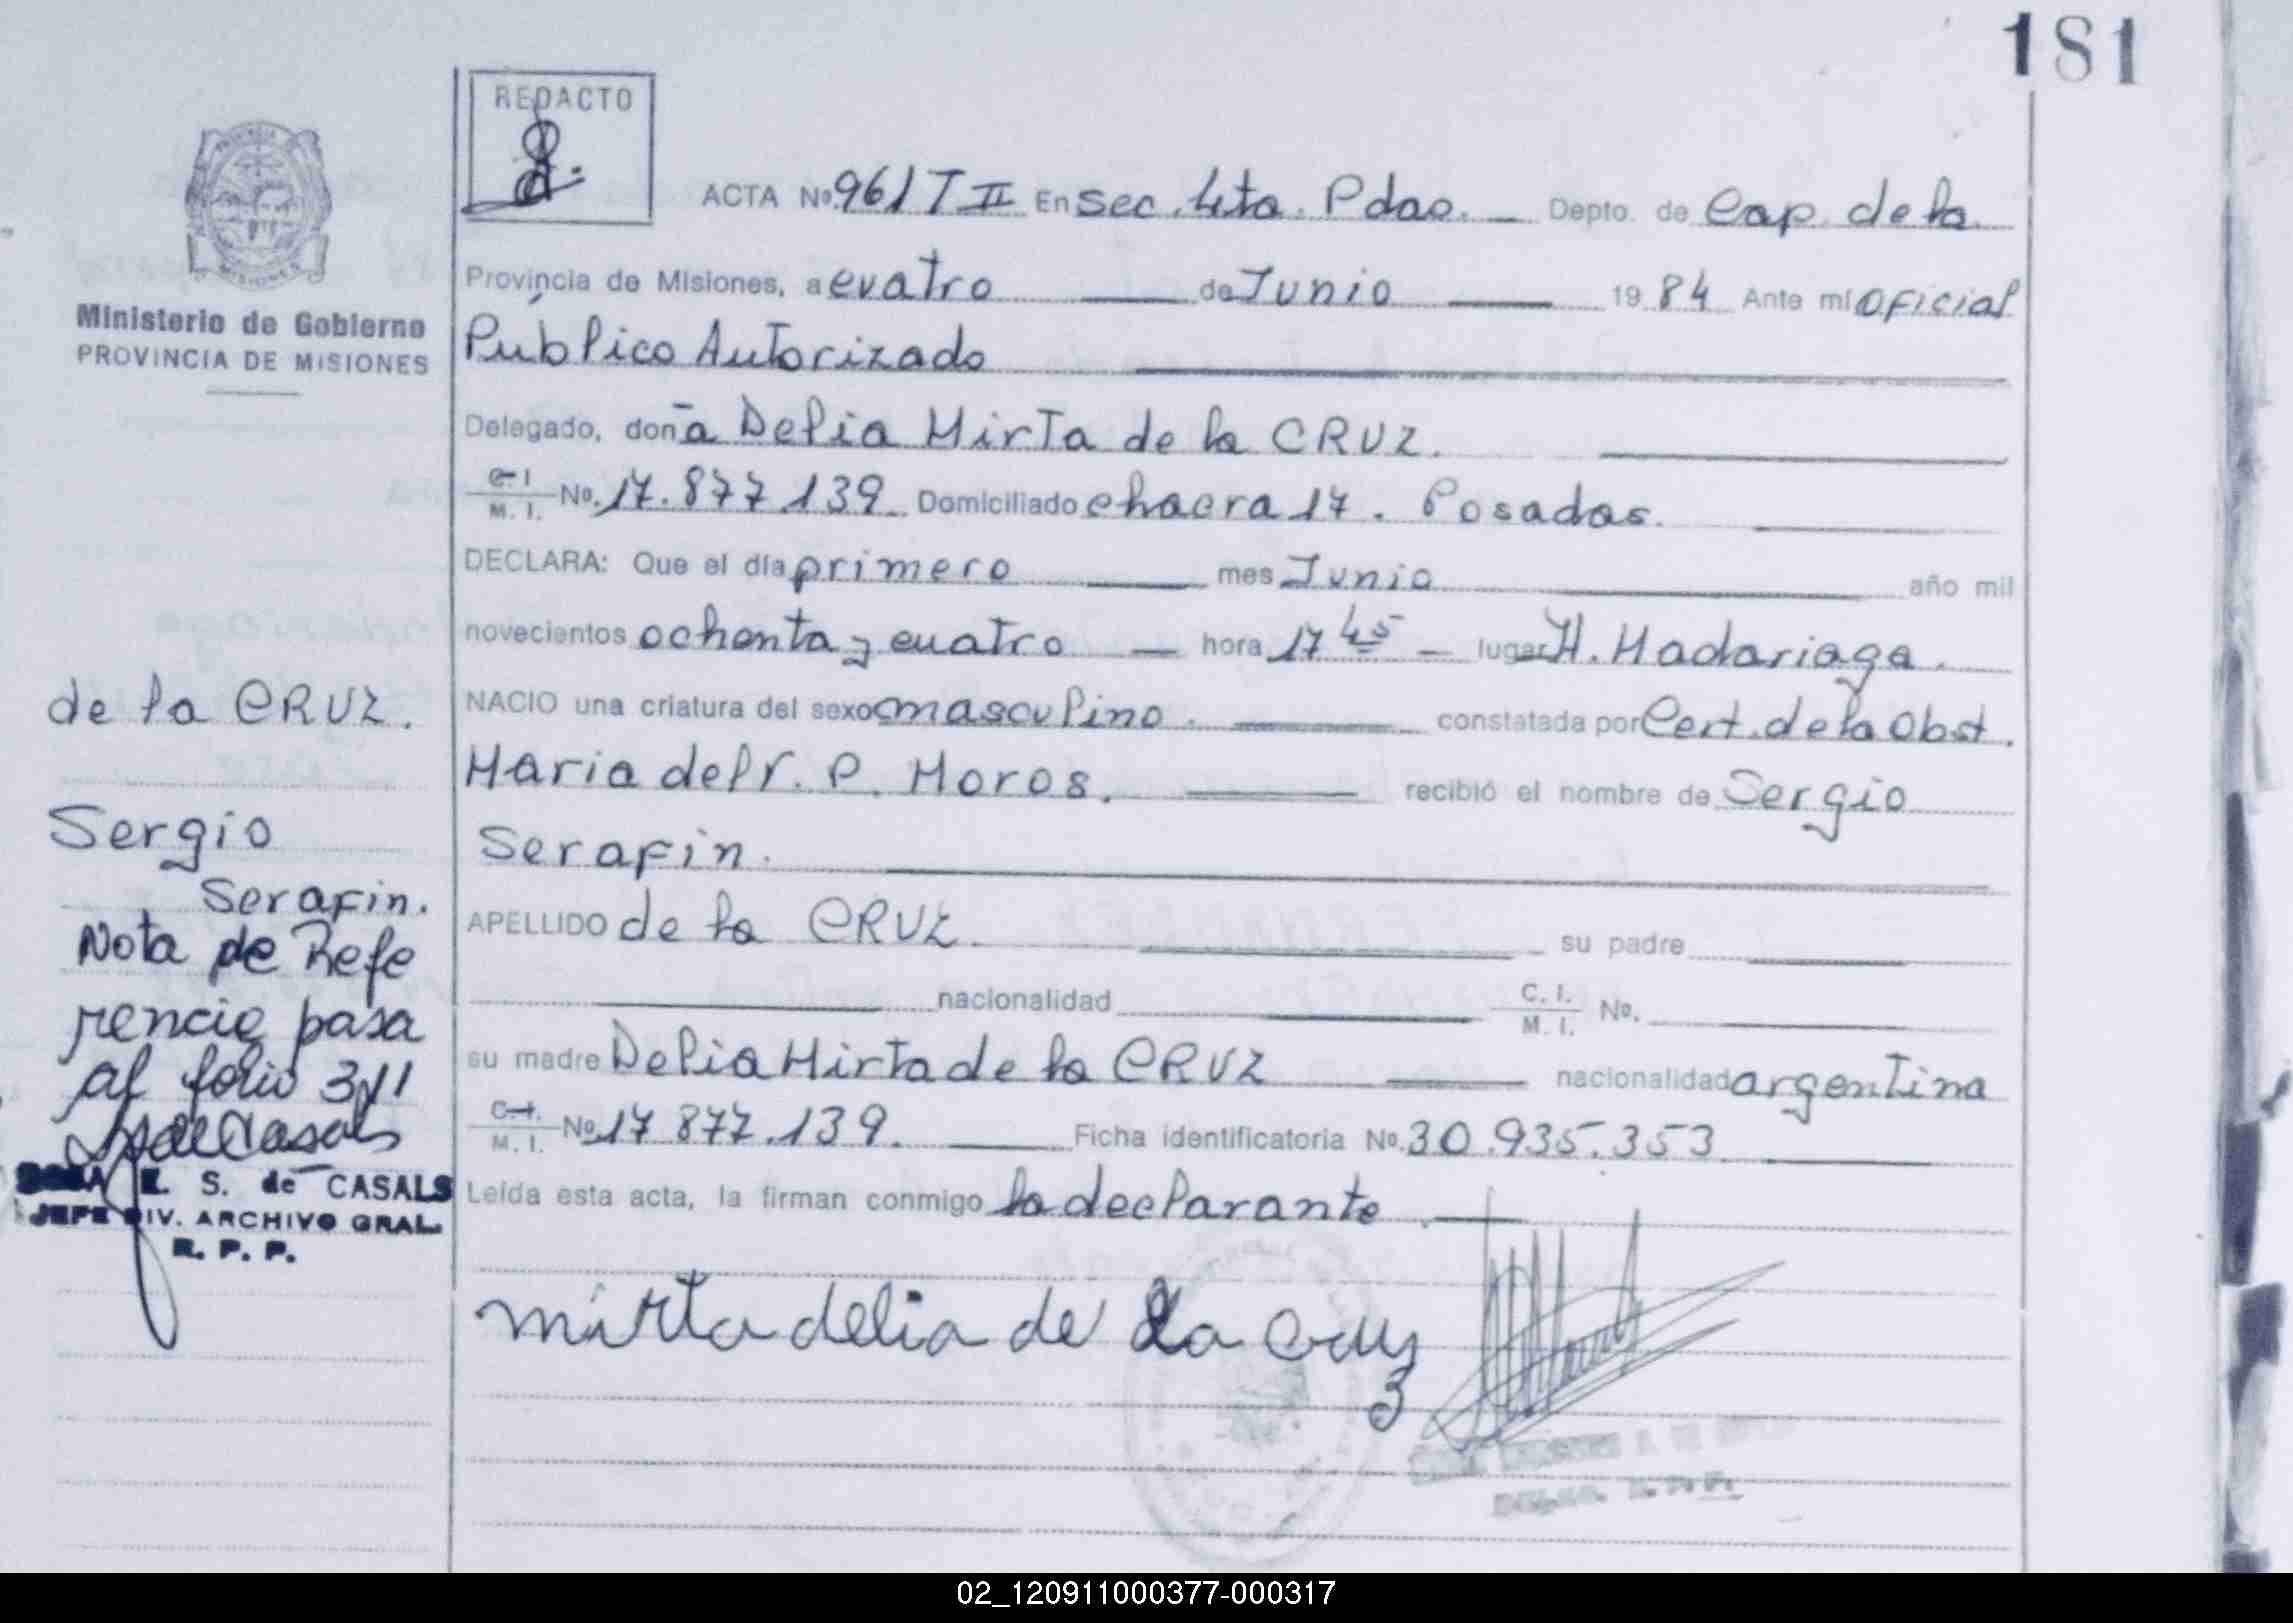 181
REDACTO
ACTA Nº 961 T II En sec. 4ta. Pdas. Depto. de Cap. de la
Provincia de Misiones, a cuatro de Junio 19 84 Ante mí Oficial
Público Autorizado
Delegado, doña Delia Mirta de la CRUZ.
C. I. M. I. Nº. 17.877.139 Domiciliado chacra 17. Posadas.
DECLARA: Que el día primero mes Junio año mil
novecientos ochenta y cuatro hora 17 45 lugar H. Madariaga.
NACIO una criatura del sexo masculino. constatada por Cert. de la Obst.
Maria del r. P. Moros. recibió el nombre de Sergio
Serafin.
APELLIDO de la CRUZ. su padre
nacionalidad C. I. M. I. Nº.
su madre Delia Mirta de la CRUZ nacionalidad argentina
C. I. M. I. Nº. 17 877.139. Ficha identificatoria Nº. 30.935.353
Leída esta acta, la firman conmigo la declarante
mirta delia de La cruz
Ministerio de Gobierno
PROVINCIA DE MISIONES
de la CRUZ.
Sergio
Serafin.
Nota de Refe
rencia pasa
al folio
E. S. de CASALS
JEFE DIV. ARCHIVO GRAL.
R. P. P.
02_120911000377-000317